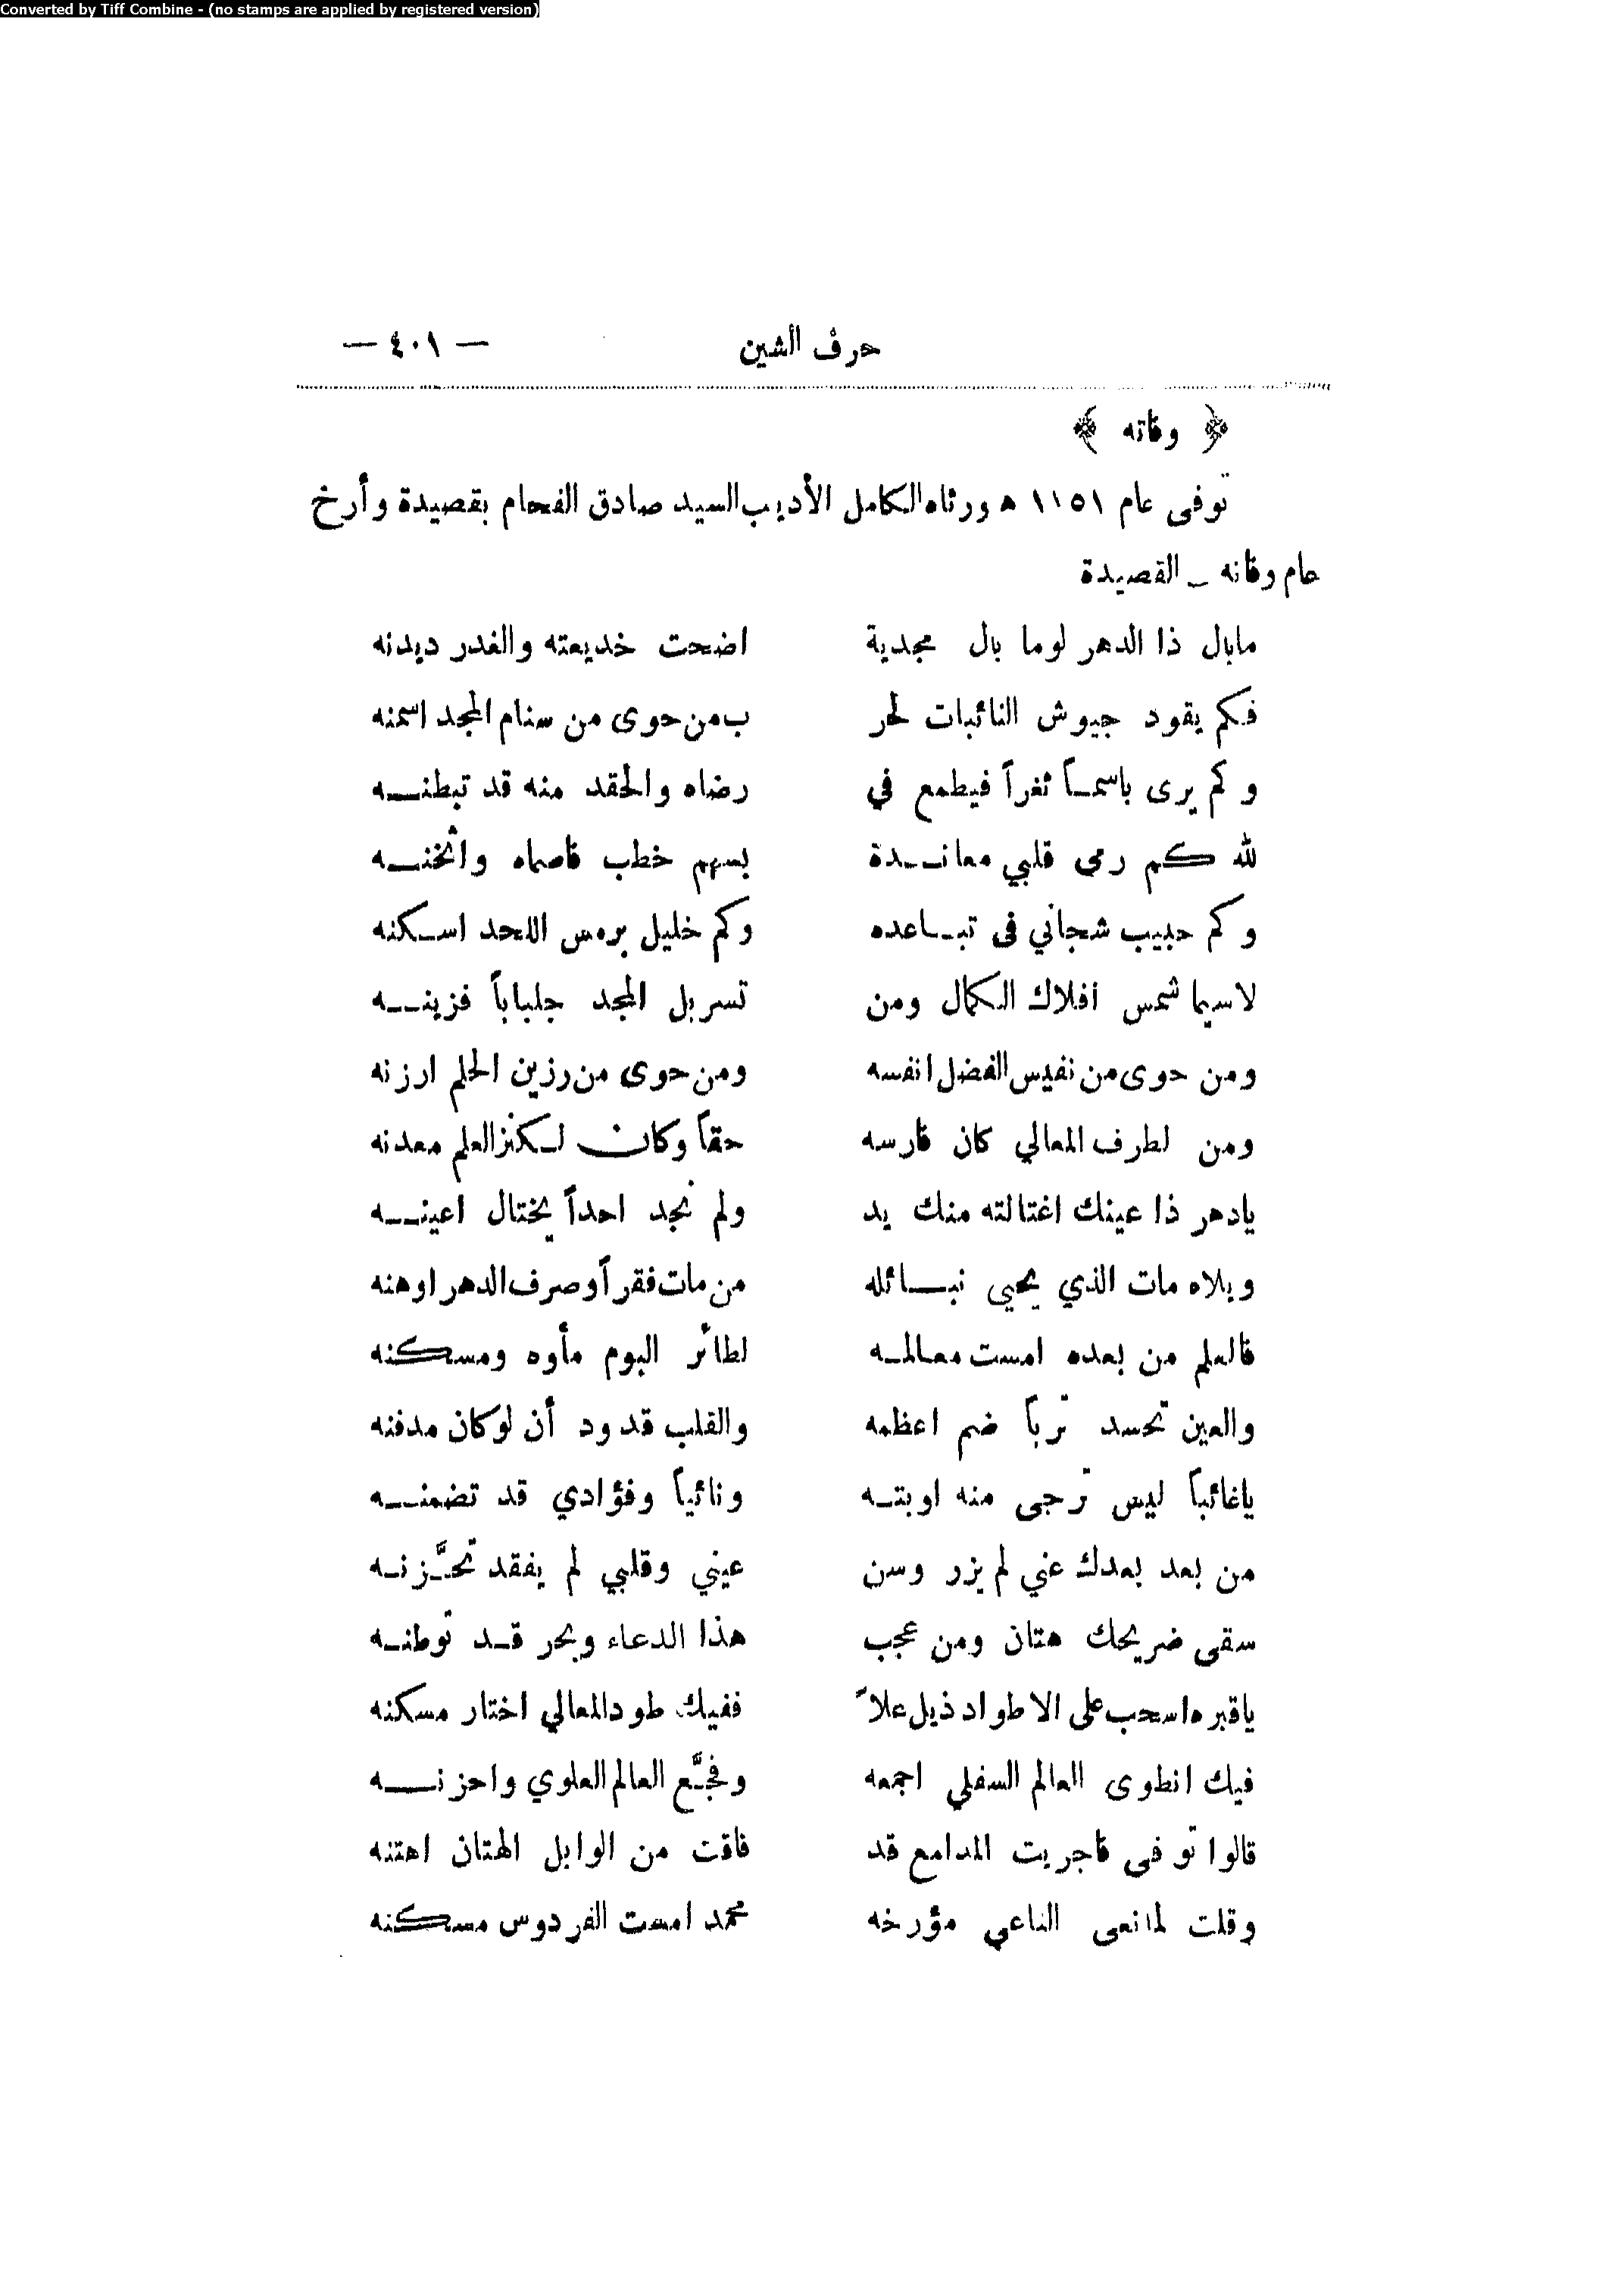 Converted by Tiff Combine - (no stamps are applied by registered version)
حرف الشين — ٤٠١ —
﴿ وفاته ﴾
توفى عام ١١٥١ ه ورثاه الكامل الأديب السيد صادق الفحام بقصيدة وأرخ
عام وفاته ـ القصيدة
مابال ذا الدهر لوما بال مجدية اضحت خديعته والغدر ديدنه
فكم يقود جيوش النائبات لحر ب من حوى من سنام المجد اسمنه
وكم يرى باسمــاً ثغراً فيطمع في رضاه والحقد منه قد تبطنــه
لله كم رمى قلبي معانــدة بسهم خطب فاصماه واثخنــه
وكم حبيب شجاني فى تبـاعده وكم خليل برمس اللحد اسـكنه
لاسيما شمس افلاك الكمال ومن تسربل المجد جلباباً فزينــه
ومن حوى من نفيس الفضل انفسه ومن حوى من رزين الحلم ارزنه
ومن لطرف المعالي كان فارسه حقاً وكان لـكنز العلم معدنه
يادهر ذا عينك اغتالته منك يد ولم نجد احداً يختال اعينــه
ويلاه مات الذي يحيى نبــائله من مات فقراً وصرف الدهر اوهنه
فالعلم من بعده امست معالمـه لطائر البوم مأوه ومسكنه
والعين تحسد ترباً ضم اعظمه والقلب قد ود أن لو كان مدفنه
ياغائباً ليس ترجى منه اوبتـه ونائياً وفؤادي قد تضمنــه
من بعد بعدك عني لم يزر وسن عيني وقلبي لم يفقد تحـزَّنـه
سقى ضريحك هتان ومن عجب هذا الدعاء وبحر قـد توطنـه
ياقبره اسحب على الاطواد ذيل علاً ففيك طود المعالي اختار مسكنه
فيك انطوى العالم السفلي اجمعه وفجَّع العالم العلوي واحزنــه
قالوا توفى فاجريت المدامع قد فاقت من الوابل الهتان اهتنه
وقلت لما نعى الناعي مؤرخه محمد امست الفردوس مسكنه